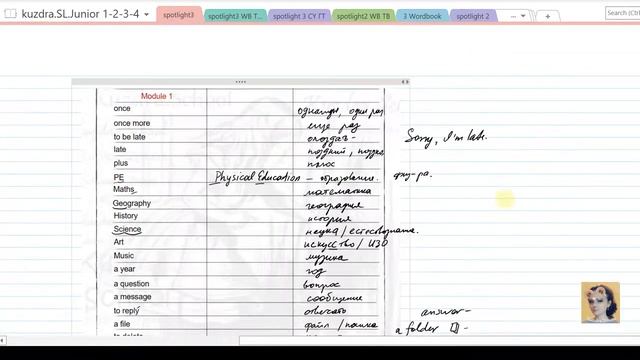 kuzdra.SL.Junior 1-2-3-4
spotlight3 spotlight3 WB T... spotlight 3 CY ГТ spotlight2 WB TB 3 Wordbook spotlight 2
Search (Ctrl
Module 1
once однажды, один раз
once more еще раз
to be late опоздать - Sorry, I'm late.
late поздний, поздно
plus плюс
PE Physical Education - образование. физ-ра.
Maths математика
Geography география
History история
Science наука / естествознание.
Art искусство / ИЗО
Music музыка
a year год
a question вопрос
a message сообщение
to reply отвечать answer-
a file файл / папка a folder